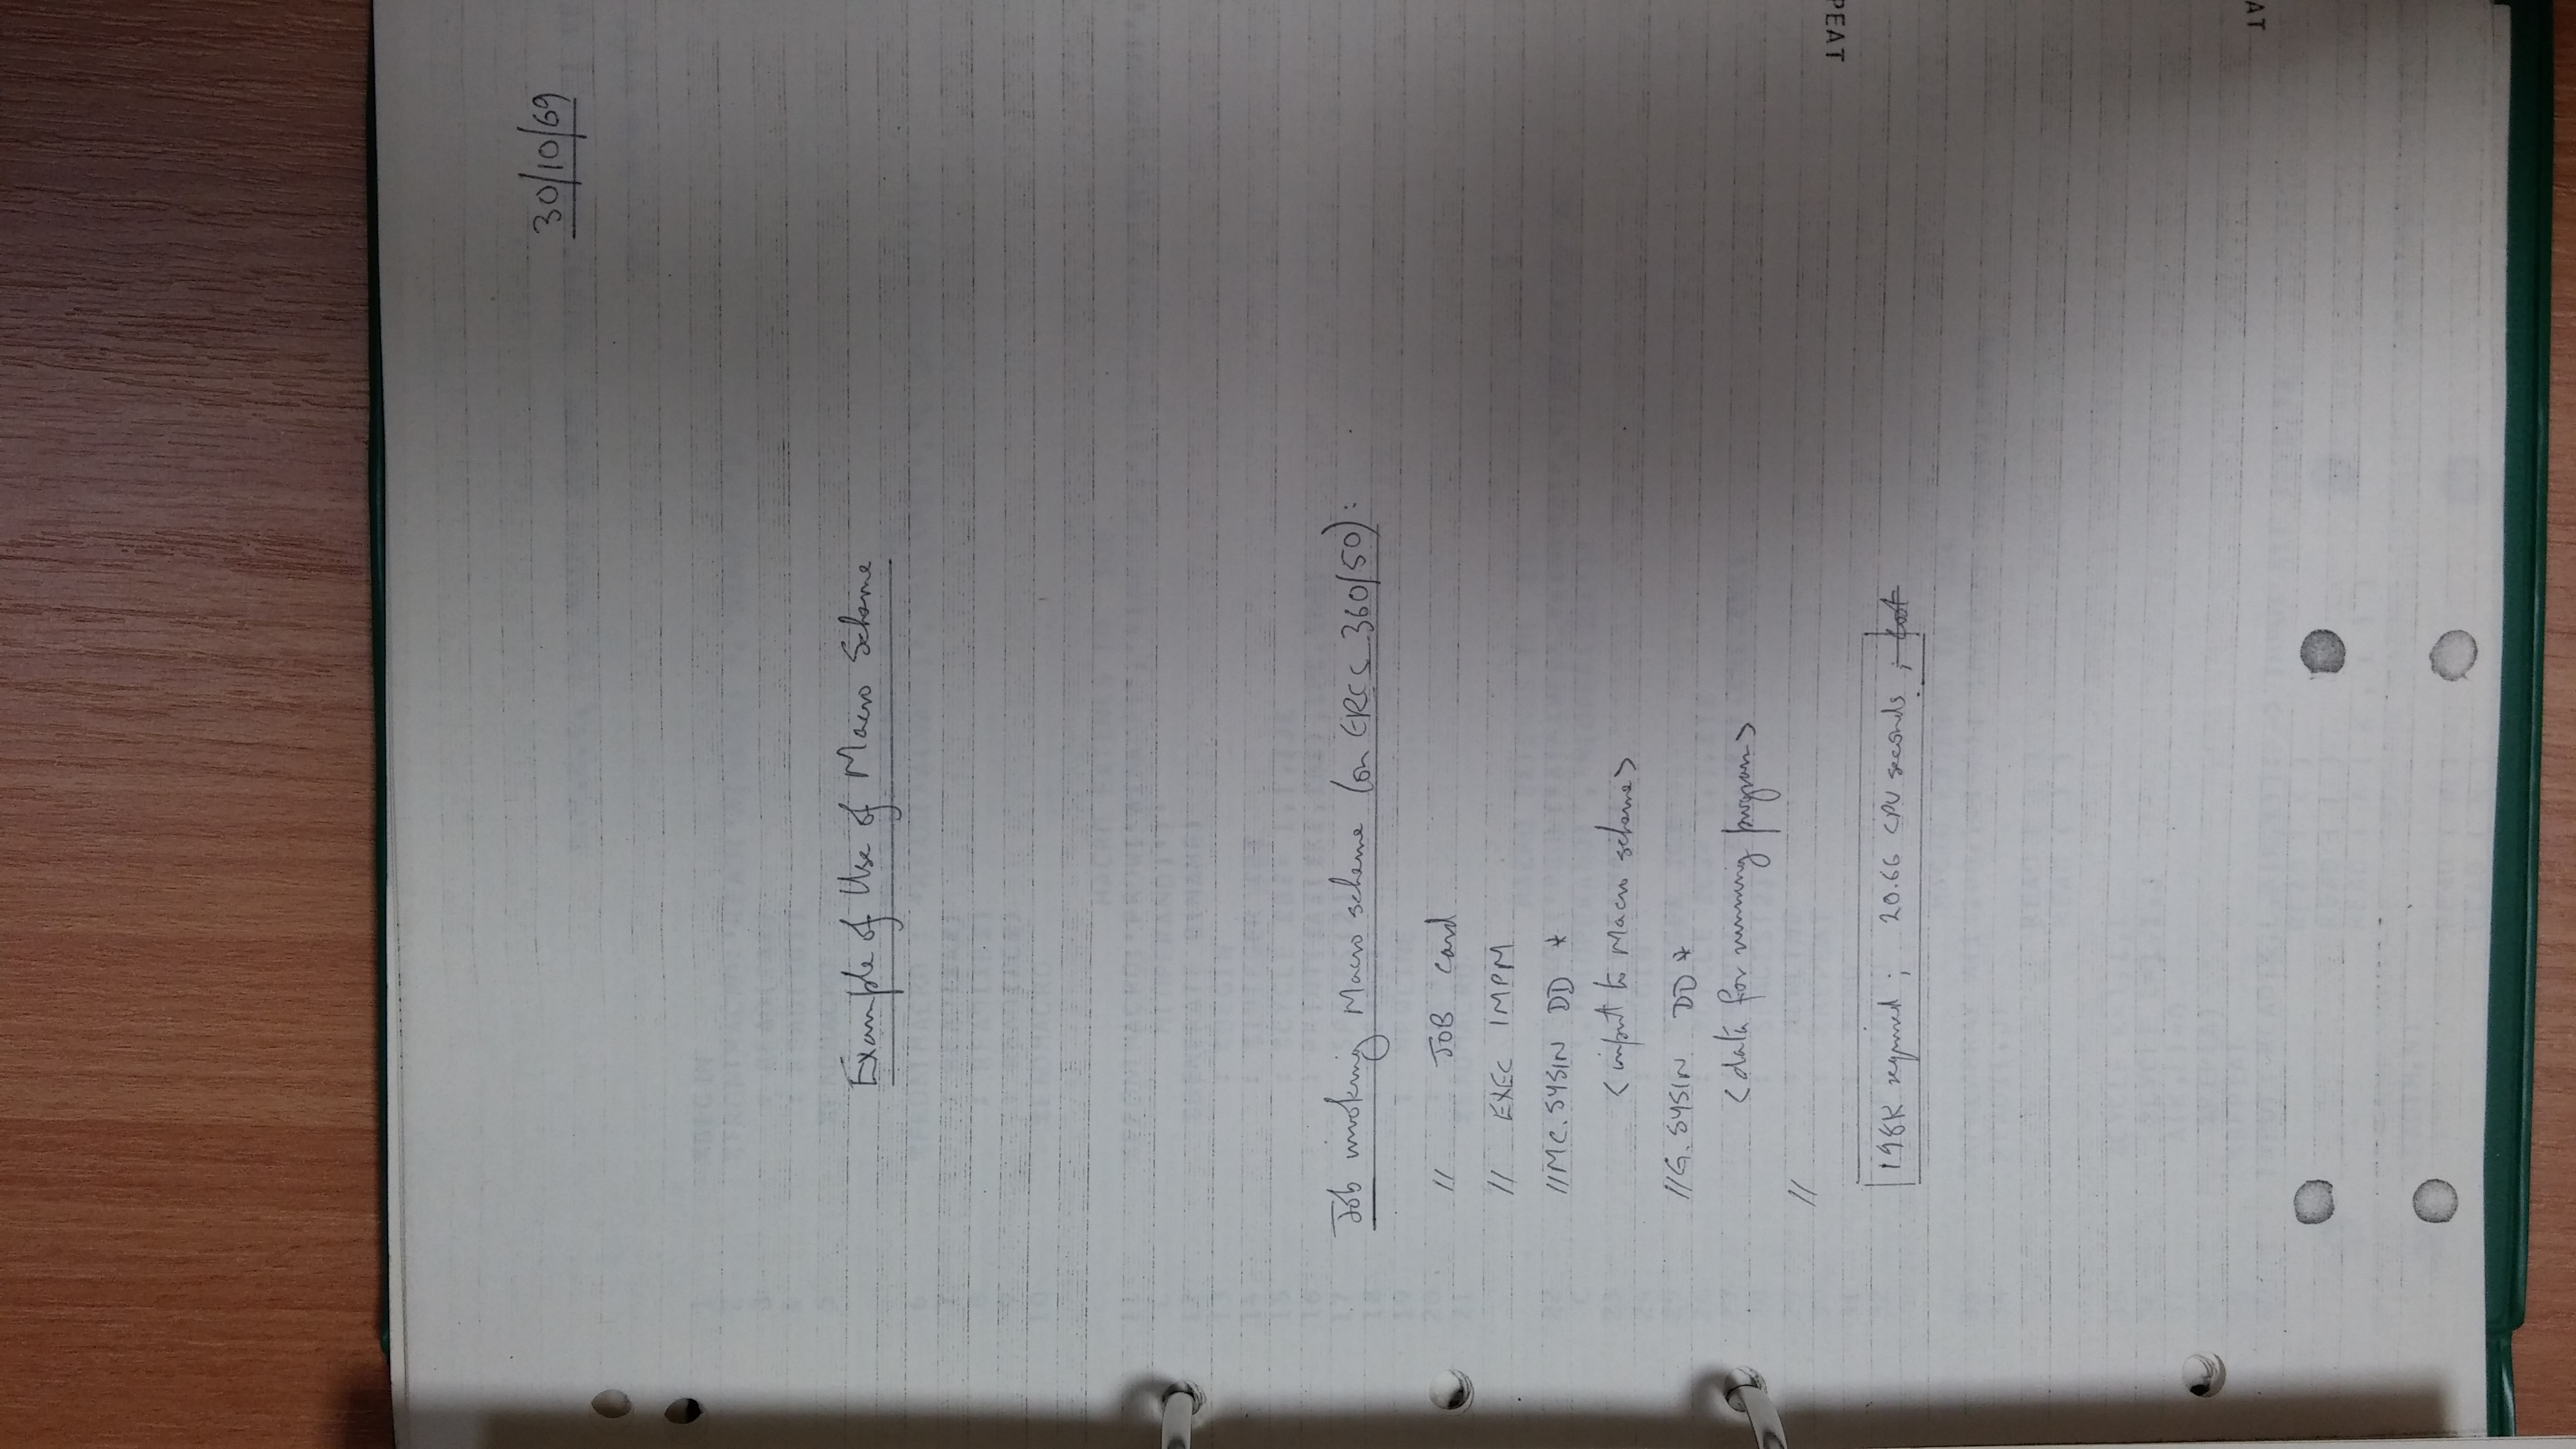 30/10/69
Example of Use of Macro Scheme
Job invoking Macro scheme (on ERCC 360/50):
// JOB card
// EXEC IMPM
//MC.SYSIN DD *
<input to Macro scheme>
//G.SYSIN DD *
<data for running program>
//
198K required; 20.66 CPU seconds;
PEAT
AT